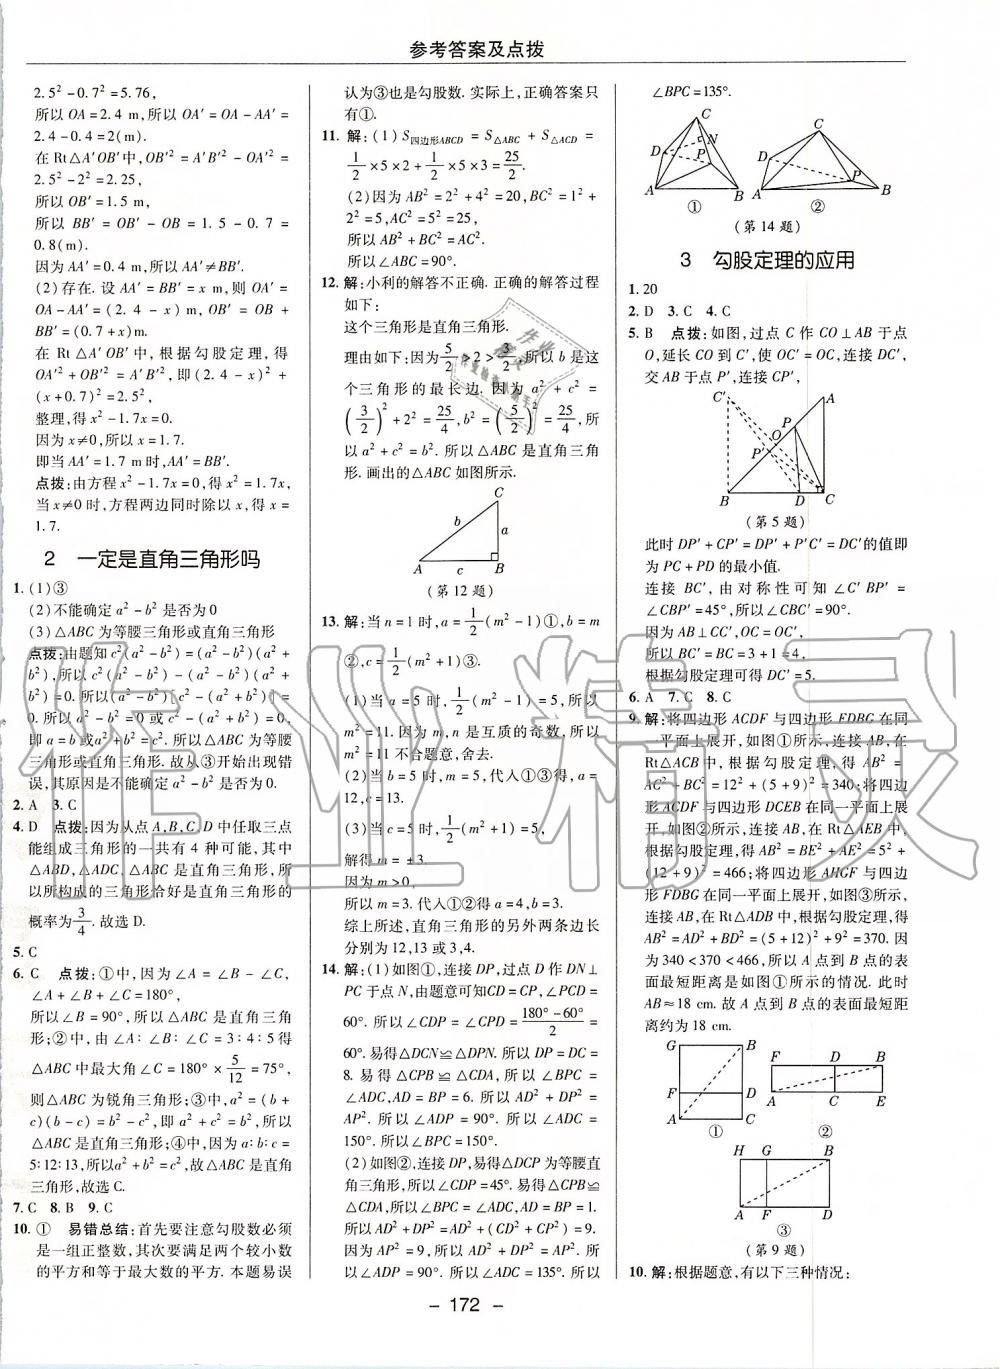 参考答案及点拨
2.5²-0.7²=5.76,
所以 OA=2.4 m,所以 OA′=OA-AA′=
2.4-0.4=2(m).
在 Rt△A′OB′中,OB′²=A′B′²-OA′²=
2.5²-2²=2.25,
所以 OB′=1.5 m,
所以 BB′=OB′-OB=1.5-0.7=
0.8(m).
因为 AA′=0.4 m,所以 AA′≠BB′.
(2)存在. 设 AA′=BB′=x m,则 OA′=
OA-AA′=(2.4-x) m, OB′=OB+
BB′=(0.7+x)m.
在 Rt△A′OB′中,根据勾股定理,得
OA′²+OB′²=A′B′²,即(2.4-x)²+
(x+0.7)²=2.5²,
整理,得 x²-1.7x=0.
因为 x≠0,所以 x=1.7.
即当 AA′=1.7 m时,AA′=BB′.
点拨:由方程 x²-1.7x=0,得 x²=1.7x,
当 x≠0 时,方程两边同时除以 x,得 x=
1.7.
2 一定是直角三角形吗
1. (1)③
(2)不能确定 a²-b² 是否为0
(3)△ABC 为等腰三角形或直角三角形
点拨:由题知 c²(a²-b²)=(a²-b²)(a²+
b²),所以 c²(a²-b²)-(a²-b²)(a²+
b²)=0. 所以(a²-b²)[c²-(a²+b²)]=
0. 所以 a²-b²=0 或 c²-(a²+b²)=0,
即 a=b或 a²+b²=c². 所以△ABC 为等腰
三角形或直角三角形. 故从③开始出现错
误,其原因是不能确定 a²-b² 是否为0.
2. A 3. C
4. D 点拨:因为从点 A,B,C,D 中任取三点
能组成三角形的一共有 4 种可能,其中
△ABD,△ADC,△ABC是直角三角形,所
以所构成的三角形恰好是直角三角形的
概率为3/4. 故选 D.
5. C
6. C 点拨:①中,因为∠A=∠B-∠C,
∠A+∠B+∠C=180°,
所以∠B=90°,所以△ABC 是直角三角
形;②中,由∠A:∠B:∠C=3:4:5得
△ABC 中最大角∠C=180°×5/12=75°,
则△ABC为锐角三角形;③中,a²=(b+
c)(b-c)=b²-c²,即 a²+c²=b²,所以
△ABC 是直角三角形;④中,因为 a:b:c=
5:12:13,所以a²+b²=c²,故△ABC 是直角
三角形,故选 C.
7. C 8. B 9. C
10. ① 易错总结:首先要注意勾股数必须
是一组正整数,其次要满足两个较小数
的平方和等于最大数的平方. 本题易误
认为③也是勾股数. 实际上,正确答案只
有①.
11. 解:(1) S四边形ABCD=S△ABC+S△ACD=
1/2×5×2+1/2×5×3=25/2.
(2)因为 AB²=2²+4²=20,BC²=1²+
2²=5,AC²=5²=25,
所以 AB²+BC²=AC².
所以∠ABC=90°.
12. 解:小利的解答不正确. 正确的解答过程
如下:
这个三角形是直角三角形.
理由如下:因为5/2>2>3/2,所以 b 是这
个三角形的最长边. 因为 a²+c²=
(3/2)²+2²=25/4,b²=(5/2)²=25/4,所
以 a²+c²=b². 所以△ABC 是直角三角
形. 画出的△ABC 如图所示.
C
b
a
A
c
B
(第 12 题)
13. 解:当 n=1 时,a=1/2(m²-1)①, b=m
②,c=1/2(m²+1)③.
(1)当 a=5 时,1/2(m²-1)=5,所以
m²=11. 因为 m,n 是互质的奇数,所以
m²=11 不合题意,舍去.
(2)当 b=5 时,m=5,代入①③得,a=
12,c=13.
(3)当 c=5 时,1/2(m²+1)=5,
解得 m=±3.
因为 m>0,
所以 m=3. 代入①②得 a=4,b=3.
综上所述,直角三角形的另外两条边长
分别为 12,13 或 3,4.
14. 解:(1)如图①,连接 DP,过点 D 作 DN⊥
PC于点 N,由题意可知CD=CP,∠PCD=
60°. 所以∠CDP=∠CPD=(180°-60°)/2=
60°. 易得△DCN≌△DPN. 所以 DP=DC=
8. 易得△CPB≌△CDA,所以∠BPC=
∠ADC,AD=BP=6. 所以 AD²+DP²=
AP². 所以∠ADP=90°. 所以∠ADC=
150°. 所以∠BPC=150°.
(2)如图②,连接 DP,易得△DCP为等腰直
角三角形,所以∠CDP=45°. 易得△CPB≌
△CDA,所以∠BPC=∠ADC,AD=BP=1.
所以 AD²+DP²=AD²+(CD²+CP²)=9.
因为 AP²=9,所以 AD²+DP²=AP². 所
以∠ADP=90°. 所以∠ADC=135°. 所以
∠BPC=135°.
C
D
N
P
A
B
①
C
D
P
A
B
②
(第 14 题)
3 勾股定理的应用
1. 20
2. D 3. C 4. C
5. B 点拨:如图,过点 C 作 CO⊥AB 于点
O,延长 CO到 C′,使 OC′=OC,连接 DC′,
交 AB于点 P′,连接 CP′,
C′
A
O
P
P′
B
D
C
(第 5 题)
此时 DP′+CP′=DP′+P′C′=DC′的值即
为 PC+PD 的最小值.
连接 BC′,由对称性可知∠C′BP′=
∠CBP′=45°,所以∠CBC′=90°.
因为 AB⊥CC′, OC′=OC,
所以 BC′=BC=3+1=4,
根据勾股定理可得 DC′=5.
6. A 7. C 8. C
9. 解:将四边形 ACDF 与四边形 FDBG 在同
一平面上展开,如图①所示,连接 AB,在
Rt△ACB 中,根据勾股定理,得 AB²=
AC²+BC²=12²+(5+9)²=340;将四边
形 ACDF与四边形 DCEB 在同一平面上展
开,如图②所示,连接 AB,在 Rt△AEB 中,
根据勾股定理,得 AB²=BE²+AE²=5²+
(12+9)²=466;将四边形 AHGF 与四边
形 FDBG 在同一平面上展开,如图③所示,
连接 AB,在 Rt△ADB 中,根据勾股定理,得
AB²=AD²+BD²=(5+12)²+9²=370. 因
为 340<370<466,所以 A 点到 B 点的表
面最短距离是如图①所示的情况. 此时
AB≈18 cm. 故 A 点到 B 点的表面最短距
离约为 18 cm.
G
B
F
D
A
C
①
F
D
B
A
C
E
②
H
G
B
A
F
D
③
(第 9 题)
10. 解:根据题意,有以下三种情况:
- 172 -
作业精灵